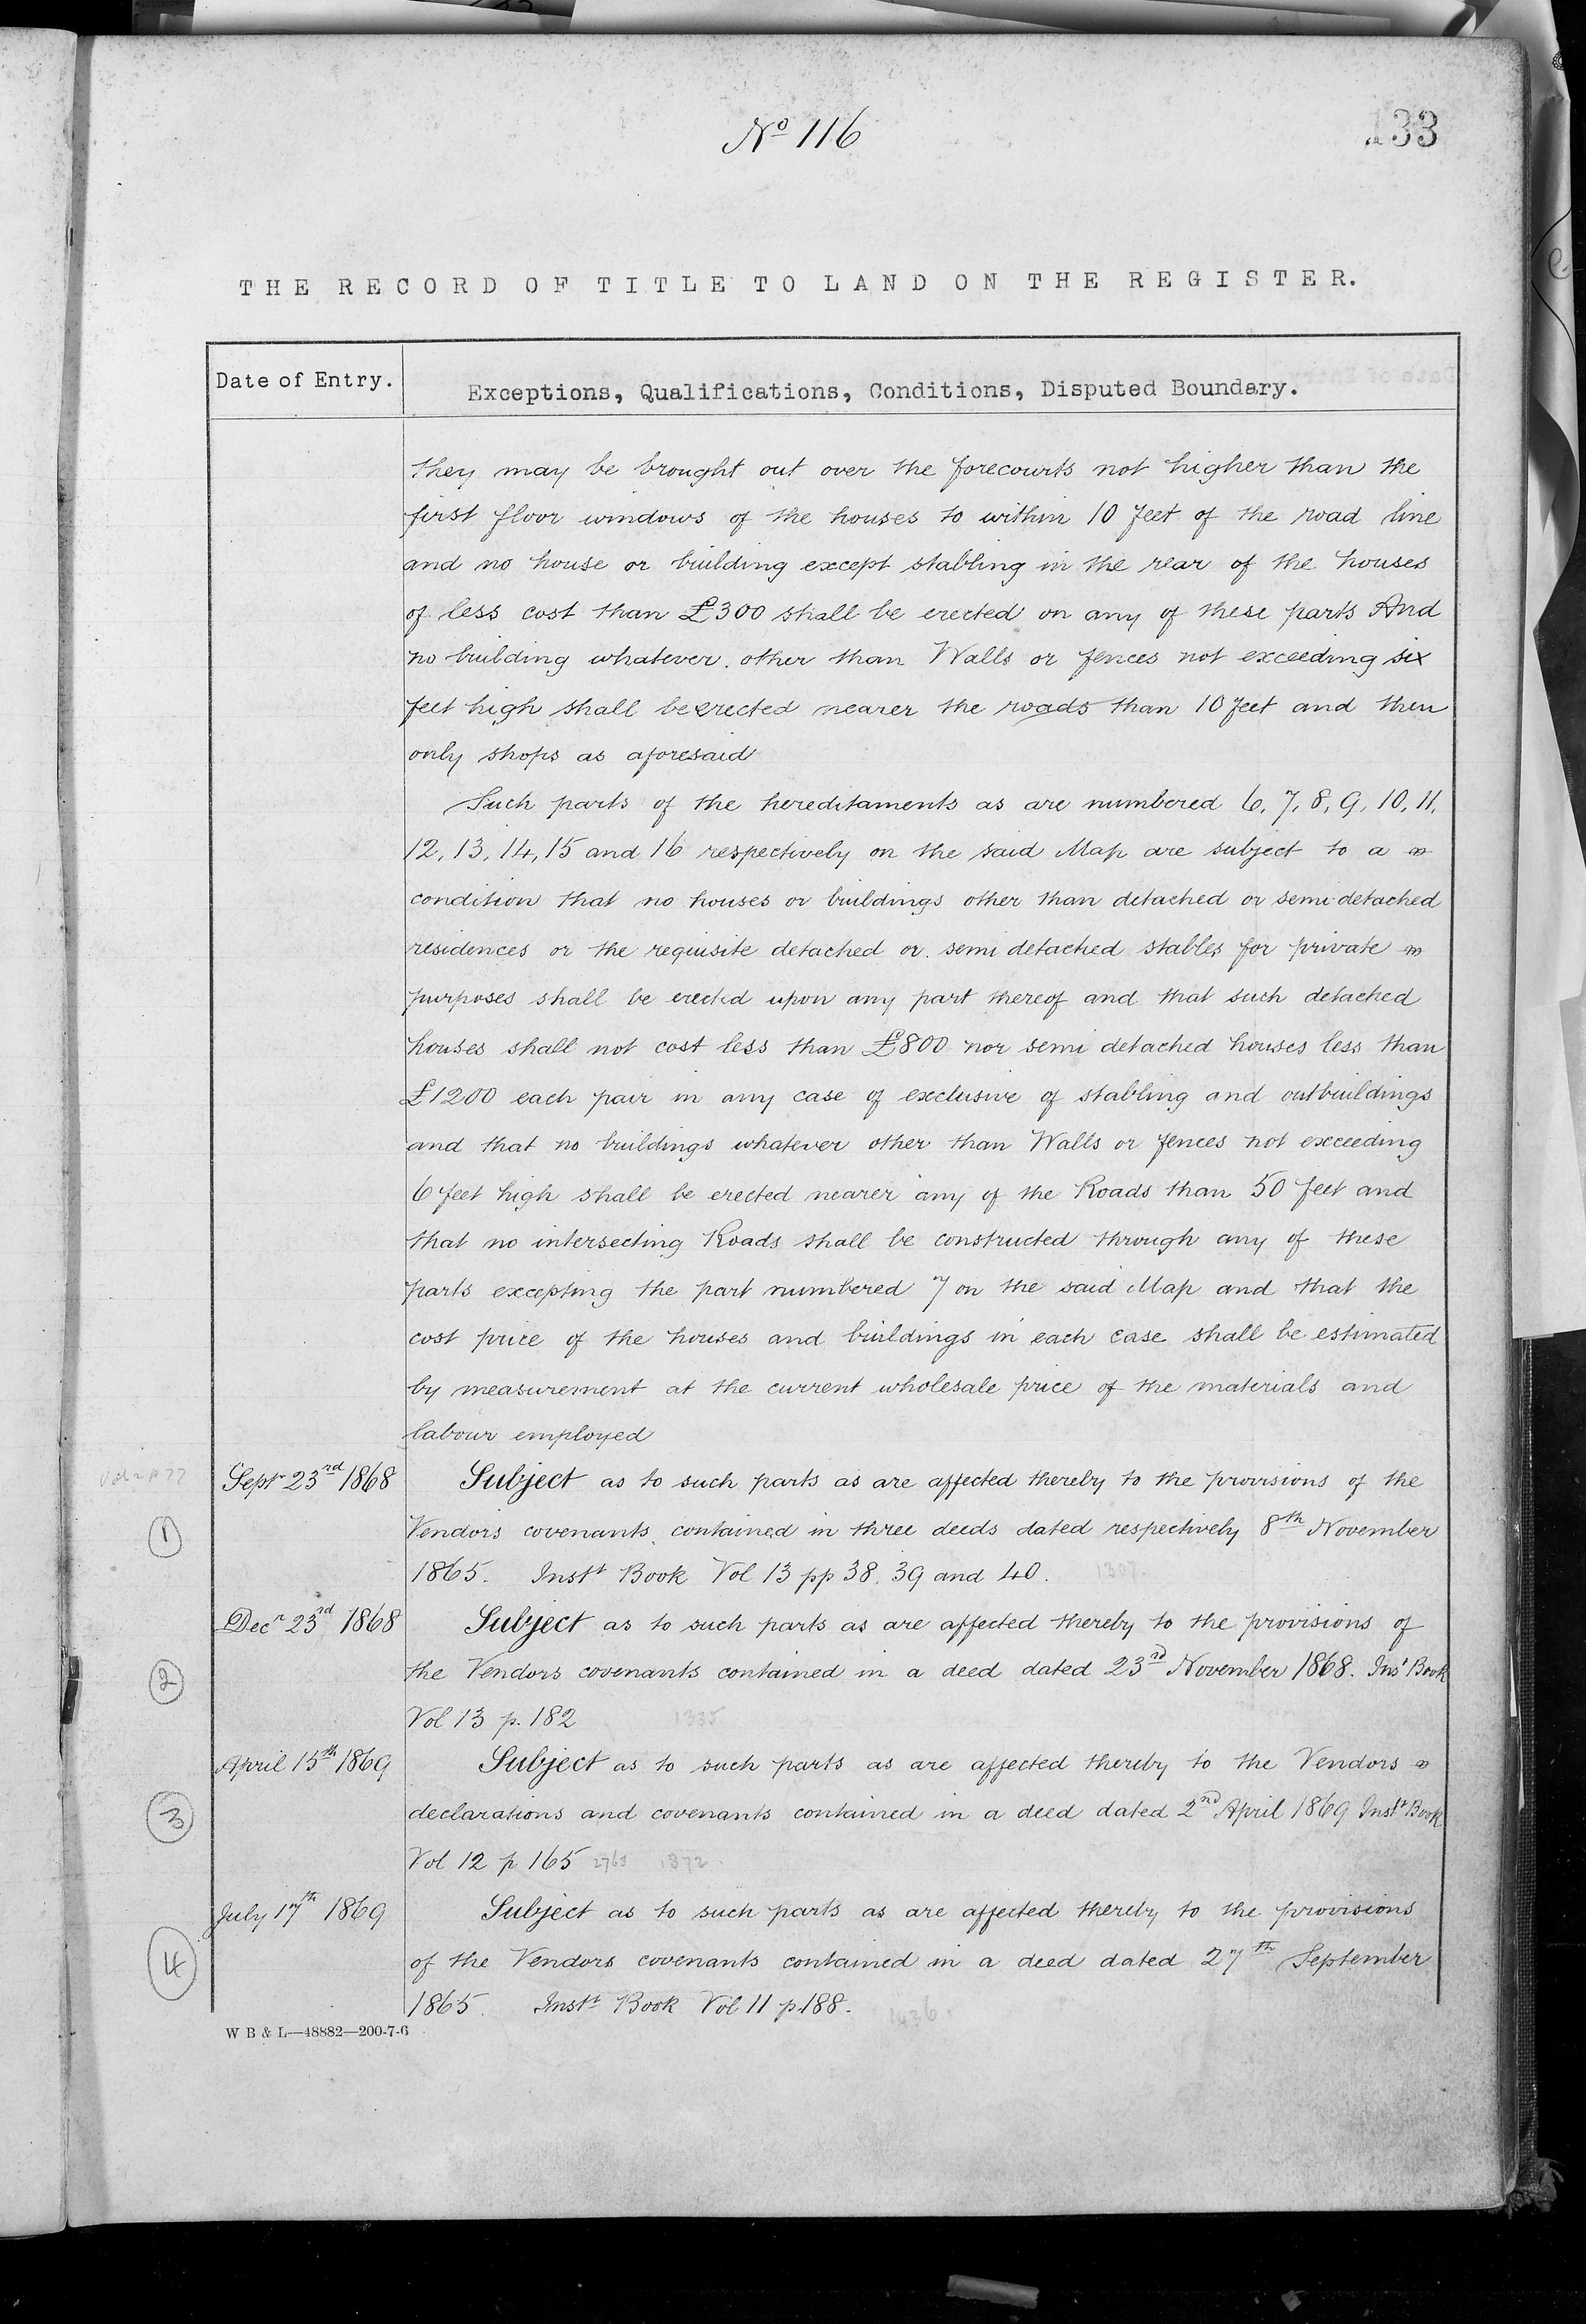 No 116
133
THE RECORD OF TITLE TO LAND ON THE REGISTER.
Date of Entry.
Exceptions, Qualifications, Conditions, Disputed Boundary.
they may be brought out over the forecourts not higher than the
first floor windows of the houses to within 10 feet of the road line
and no house or building except stabling in the rear of the houses
of less cost than £300 shall be erected on any of these parts And
no building whatever other than Walls or fences not exceeding six
feet high shall be erected nearer the roads than 10 feet and then
only shops as aforesaid
Such parts of the hereditaments as are numbered 6, 7, 8, 9, 10, 11,
12, 13, 14, 15 and 16 respectively on the said Map are subject to a
condition that no houses or buildings other than detached or semi detached
residences or the requisite detached or semi detached stables for private
purposes shall be erected upon any part thereof and that such detached
houses shall not cost less than £800 nor semi detached houses less than
£1200 each pair in any case of exclusive of stabling and outbuildings
and that no buildings whatever other than Walls or fences not exceeding
6 feet high shall be erected nearer any of the Roads than 50 feet and
that no intersecting Roads shall be constructed through any of these
parts excepting the part numbered 7 on the said Map and that the
cost price of the houses and buildings in each case shall be estimated
by measurement at the current wholesale price of the materials and
labour employed
Sepr 23rd 1868 Subject as to such parts as are affected thereby to the provisions of the
1 Vendors covenants contained in three deeds dated respectively 8th November
1865. Instt Book Vol 13 pp 38. 39 and 40. 1307.
Decr 23rd 1868 Subject as to such parts as are affected thereby to the provisions of
2 the Vendors covenants contained in a deed dated 23rd November 1868. Inst Book
Vol 13 p. 182 1335
April 15th 1869 Subject as to such parts as are affected thereby to the Vendors
3 declarations and covenants contained in a deed dated 2nd April 1869 Instt Book
Vol 12 p 165 2763 1372
July 17th 1869 Subject as to such parts as are affected thereby to the provisions
4 of the Vendors covenants contained in a deed dated 27th September
1865. Instt Book Vol 11 p.188. 1436.
W B & L—48882—200-7-6